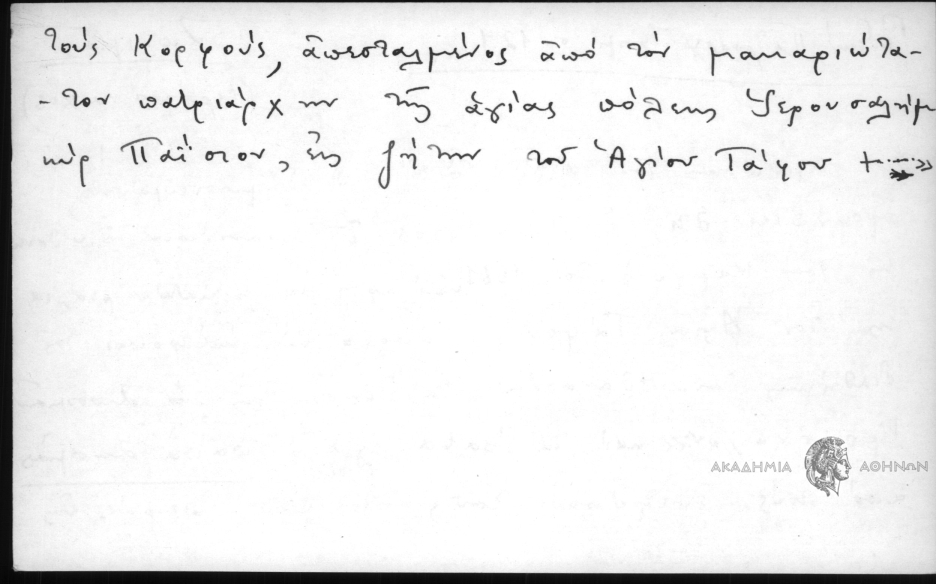 τοὺς Κορφούς, ἀπεσταλμένος ἀπὸ τὸν μακαριώτα-
-τον πατριάρχην τῆς ἁγίας πόλεης Ἱερουσαλήμ
κὺρ Παΐσιον, εἰς ζήτην τοῦ Ἁγίου Τάφου +
ΑΚΑΔΗΜΙΑ ΑΘΗΝΩΝ